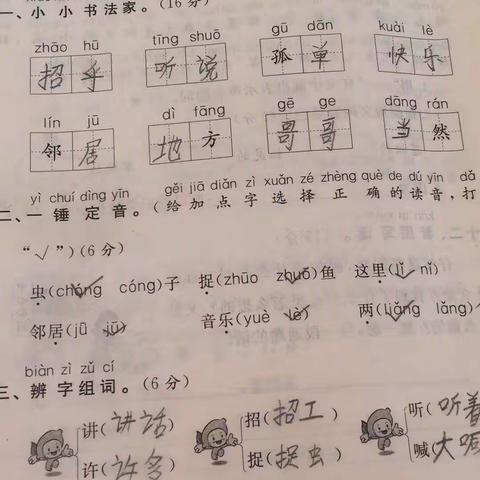 一、小小书法家。(16分)
zhāo hū tīng shuō gū dān kuài lè
招乎 听说 孤单 快乐
lín jū dì fāng gē ge dāng rán
邻居 地方 哥哥 当然
yì chuí dìng yīn gěi jiā diǎn zì xuǎn zé zhèng què de dú yīn dǎ
二、一锤定音。(给加点字选择正确的读音,打
“√”)(6分)
虫(chóng cóng)子 捉(zhūo zhuō)鱼 这里(lǐ nǐ)
邻居(jū jū) 音乐(yuè lè) 两(liǎng lǎng)
biàn zì zǔ cí
三、辨字组词。(6分)
讲(讲话) 招(招工) 听(听着
许(许多) 捉(捉虫) 喊(大喊